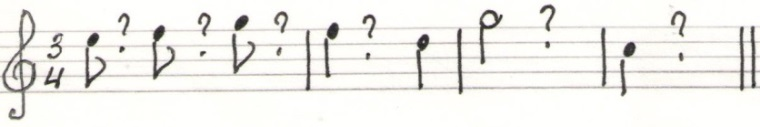 3 ? ? ? ? ? ?
4